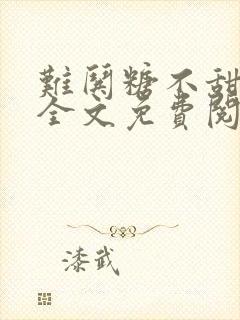 難閑糖不甜
全文免費閱
漆武